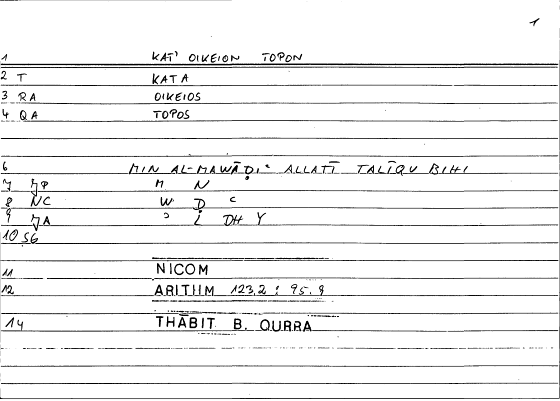 1
1 KAT' OIKEION TOPON
2 T KATA
3 RA OIKEIOS
4 QA TOPOS
6 MIN AL-MAWĀḌIʿ ALLATĪ TALĪQU BIHI
7 JP M N
8 NC W Ḍ ʿ
9 JA ʾ L DH Y
10 SG
11 NICOM
12 ARITHM 123,2 : 95.8
14 THĀBIT B. QURRA